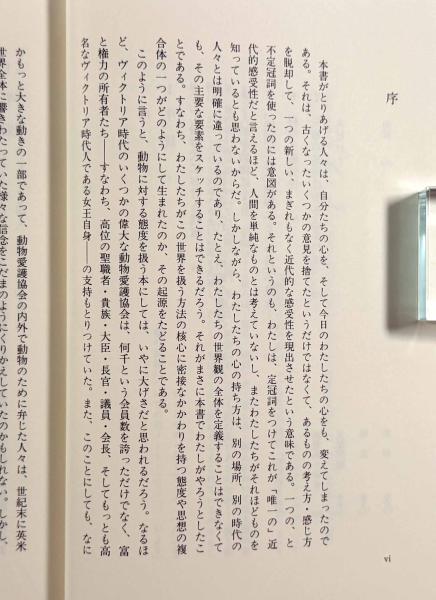 序
本書がとりあげる人々は、自分たちの心を、そして今日のわたしたちの心をも、変えてしまったので
ある。それは、古くなったいくつかの意見を捨てたというだけではなくて、あるものの考え方・感じ方
を脱却して、一つの新しい、まぎれもなく近代的な感受性を現出させたという意味である。一つの、と
不定冠詞を使ったのには意図がある。それというのも、わたしは、定冠詞をつけてこれが「唯一の」近
代的感受性だと言えるほど、人間を単純なものとは考えていないし、またわたしたちがそれほどものを
知っているとも思わないからだ。しかしながら、わたしたちの心の持ち方は、別の場所、別の時代の
人々とは明確に違っているのであり、たとえ、わたしたちの世界観の全体を定義することはできなくて
も、その主要な要素をスケッチすることはできるだろう。それがまさに本書でわたしがやろうとしたこ
とである。すなわち、わたしたちがこの世界を扱う方法の核心に密接なかかわりを持つ態度や思想の複
合体の一つがどのようにして生まれたのか、その起源をたどることである。
このように言うと、動物に対する態度を扱う本にしては、いやに大げさだと思われるだろう。なるほ
ど、ヴィクトリア時代のいくつかの偉大な動物愛護協会は、何千という会員数を誇っただけでなく、富
と権力の所有者たち――すなわち、高位の聖職者・貴族・大臣・長官・議員・会長、そしてもっとも高
名なヴィクトリア時代人である女王自身――の支持もとりつけていた。また、このことにしても、なに
vi
かもっと大きな動きの一部であって、動物愛護協会の内外で動物のために弁じた人々は、世紀末に英米
世界全体に響きわたっていた様々な信念をこだまのようにくりかえしていたのかもしれない。しかし、